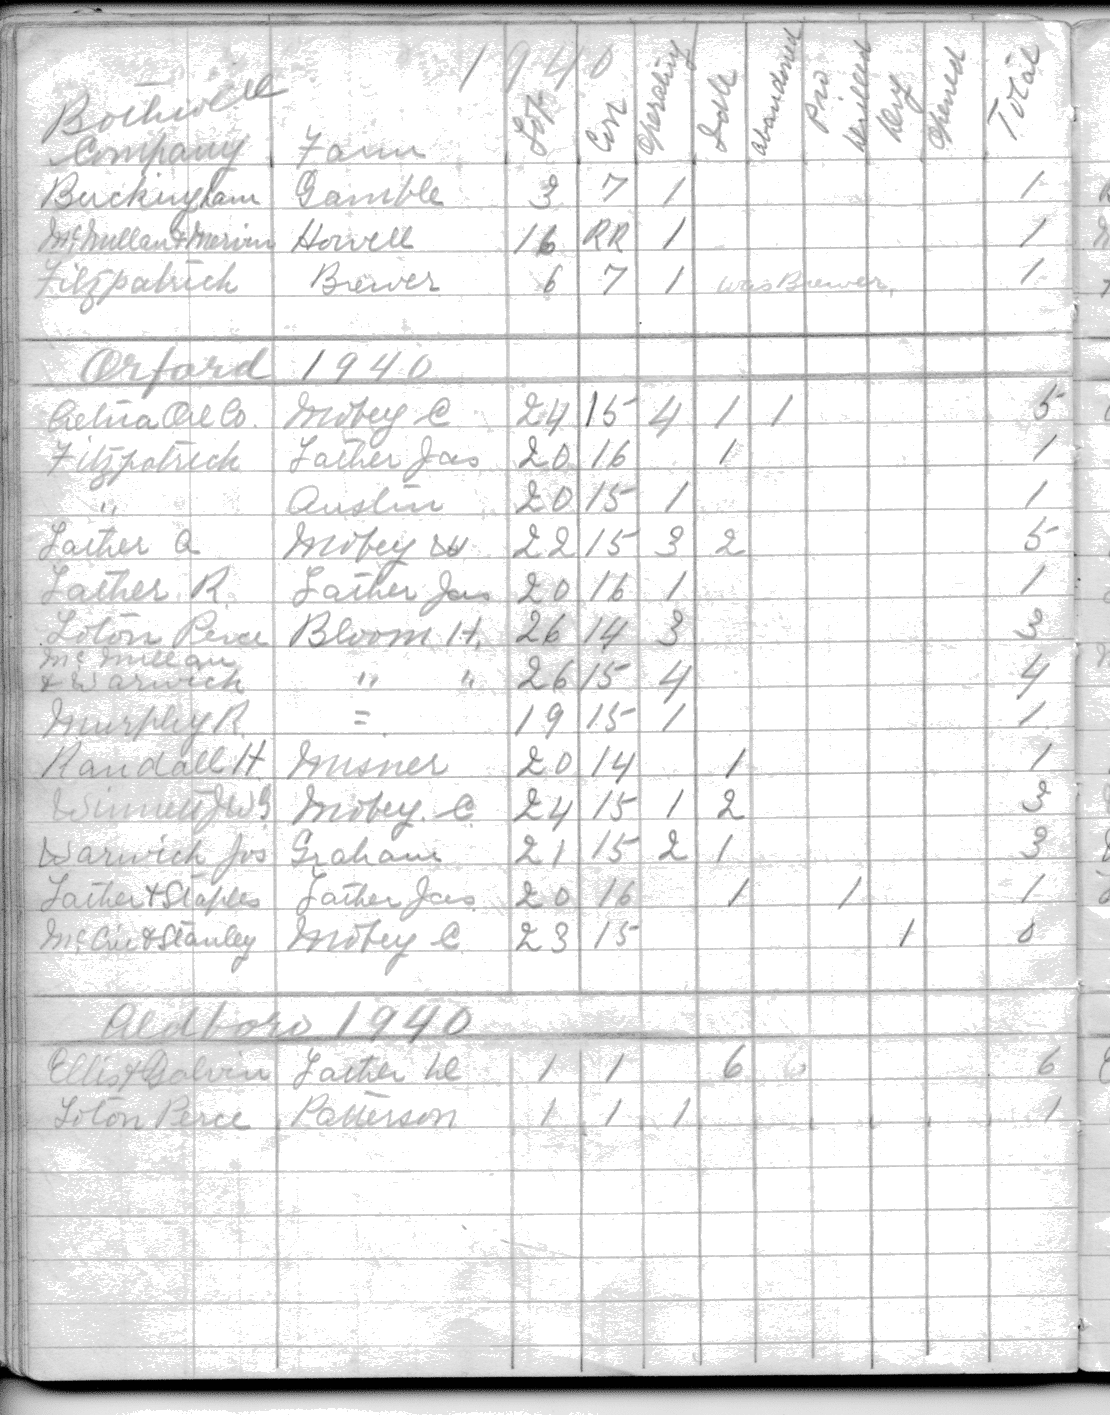 1940
Bothwell
Company Farm Lot Con Operating Idle Abandoned Pro Drilled Dry Opened Total
Buckingham Gamble 3 7 1 1
McMullan & Mervin Howell 16 RR 1 1
Fitzpatrick Brewer 6 7 1 was Brewer. 1
Orford 1940
Aetna Oil Co. Mobey C 24 15 4 1 1 5
Fitzpatrick Lather Jas 20 16 1 1
" Austin 20 15 1 1
Lather A Mobey W 22 15 3 2 5
Lather R. Lather Jas 20 16 1 1
Loton Perce Bloom H. 26 14 3 3
McMillan
& Warwick " " 26 15 4 4
Murphy R. = 19 15 1 1
Randall H Misner 20 14 1 1
Winnett J W G Mobey. C. 24 15 1 2 3
Warwick Jos Graham 21 15 2 1 3
Lather & Staples Lather Jas 20 16 1 1 1
& Stanley Mobey C 23 15 1 0
Aldboro 1940
Ellis & Galvin Lather 1 1 6 6
Loton Perce Patterson 1 1 1 1